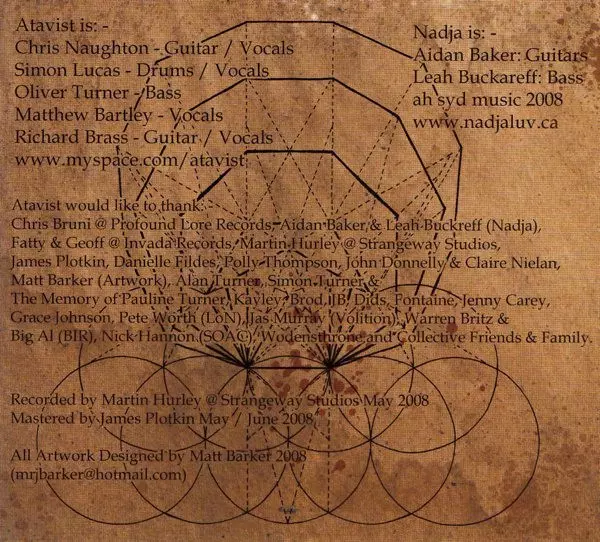 Atavist is: -
Chris Naughton - Guitar / Vocals
Simon Lucas - Drums / Vocals
Oliver Turner - Bass
Matthew Bartley - Vocals
Richard Brass - Guitar / Vocals
www.myspace.com/atavist
Nadja is: -
Aidan Baker: Guitars
Leah Buckareff: Bass
ah syd music 2008
www.nadjaluv.ca
Atavist would like to thank: -
Chris Bruni @ Profound Lore Records, Aidan Baker & Leah Buckreff (Nadja),
Fatty & Geoff @ Invada Records, Martin Hurley @ Strangeway Studios,
James Plotkin, Danielle Fildes, Polly Thompson, John Donnelly & Claire Nielan,
Matt Barker (Artwork), Alan Turner, Simon Turner &
The Memory of Pauline Turner, Kayley, Brod, JB, Dids, Fontaine, Jenny Carey,
Grace Johnson, Pete Worth (LoN), Jas Murray (Volition), Warren Britz &
Big Al (BIR), Nick Hannon (SOA©), Wodensthrone and Collective Friends & Family.
Recorded by Martin Hurley @ Strangeway Studios May 2008
Mastered by James Plotkin May / June 2008
All Artwork Designed by Matt Barker 2008
(mrjbarker@hotmail.com)